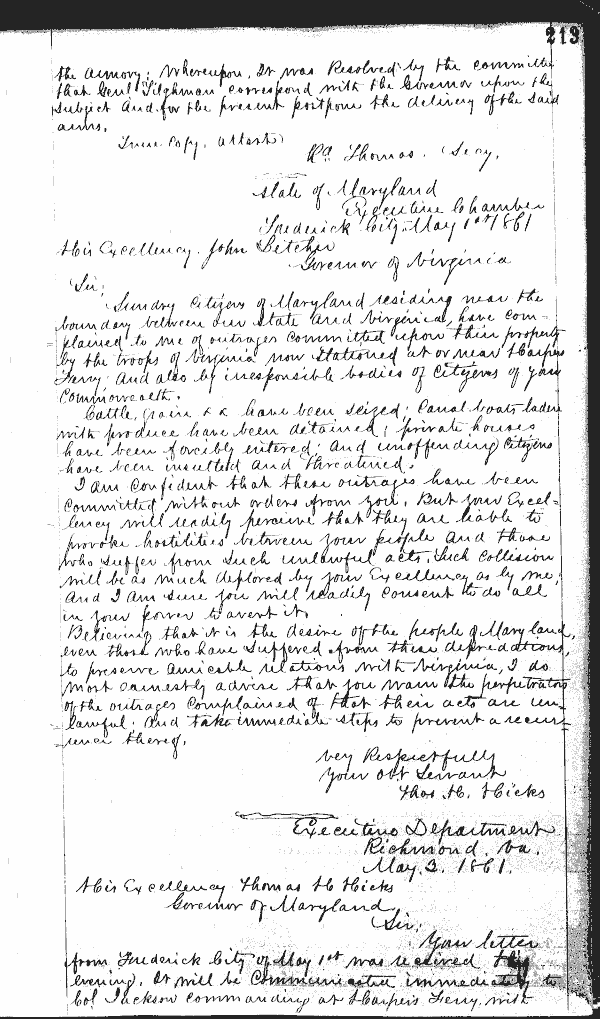 213
the armory; Whereupon, It was Resolved by the committee
that Genl Tilghman correspond with the Governor upon the
subject and for the present postpone the delivery of the said
arms.
True Copy. attest
Thomas. Secy.
State of Maryland
Executive Chamber
Frederick City May 1st 1861
His Excellency. John Letcher
Governor of Virginia
Sir;
Sundry Citizens of Maryland residing near the
boundary between our State and Virginia, have com-
plained to me of outrages committed upon their property
by the troops of Virginia now stationed at or near Harpers
Ferry: And also by inesponsible bodies of Citizens of your
Commonwealth.
Cattle, grain &c have been seized; Canal boats laden
with produce have been detained; private houses
have been forcibly entered: and unoffending Citizens
have been insulted and threatened.
I am confident that these outrages have been
committed without orders from you. But your Excel-
lency will readily perceive that they are liable to
provoke hostilities between your people and those
who suffer from such unlawful acts. Such collision
will be as much deplored by your Excellency as by me;
and I am sure you will readily consent to do all
in your power to avert it.
Believing that it is the desire of the people of Maryland,
even those who have suffered from these depredations,
to preserve amicable relations with Virginia, I do
most earnestly advise that you warn the perpetrators
of the outrages complained of that their acts are un-
lawful: and take immediate steps to prevent a recur-
rence thereof.
very Respectfully
your obt Servant
Thos H. Hicks
Executive Department
Richmond. Va.
May 2. 1861.
His Excellency Thomas H Hicks
Governor of Maryland
Sir;
Your letter
from Frederick City of May 1st was received this
evening. It will be communicated immediately to
Col Jackson commanding at Harpers Ferry, with